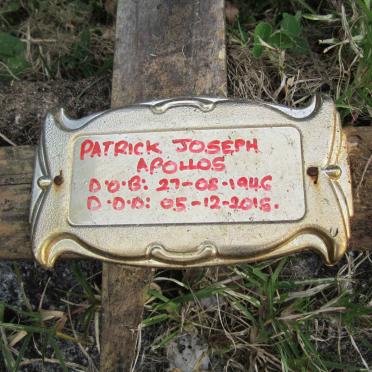 PATRICK JOSEPH
APOLLOS
D.O.B: 27-08-1946
D.O.D: 05-12-2018.